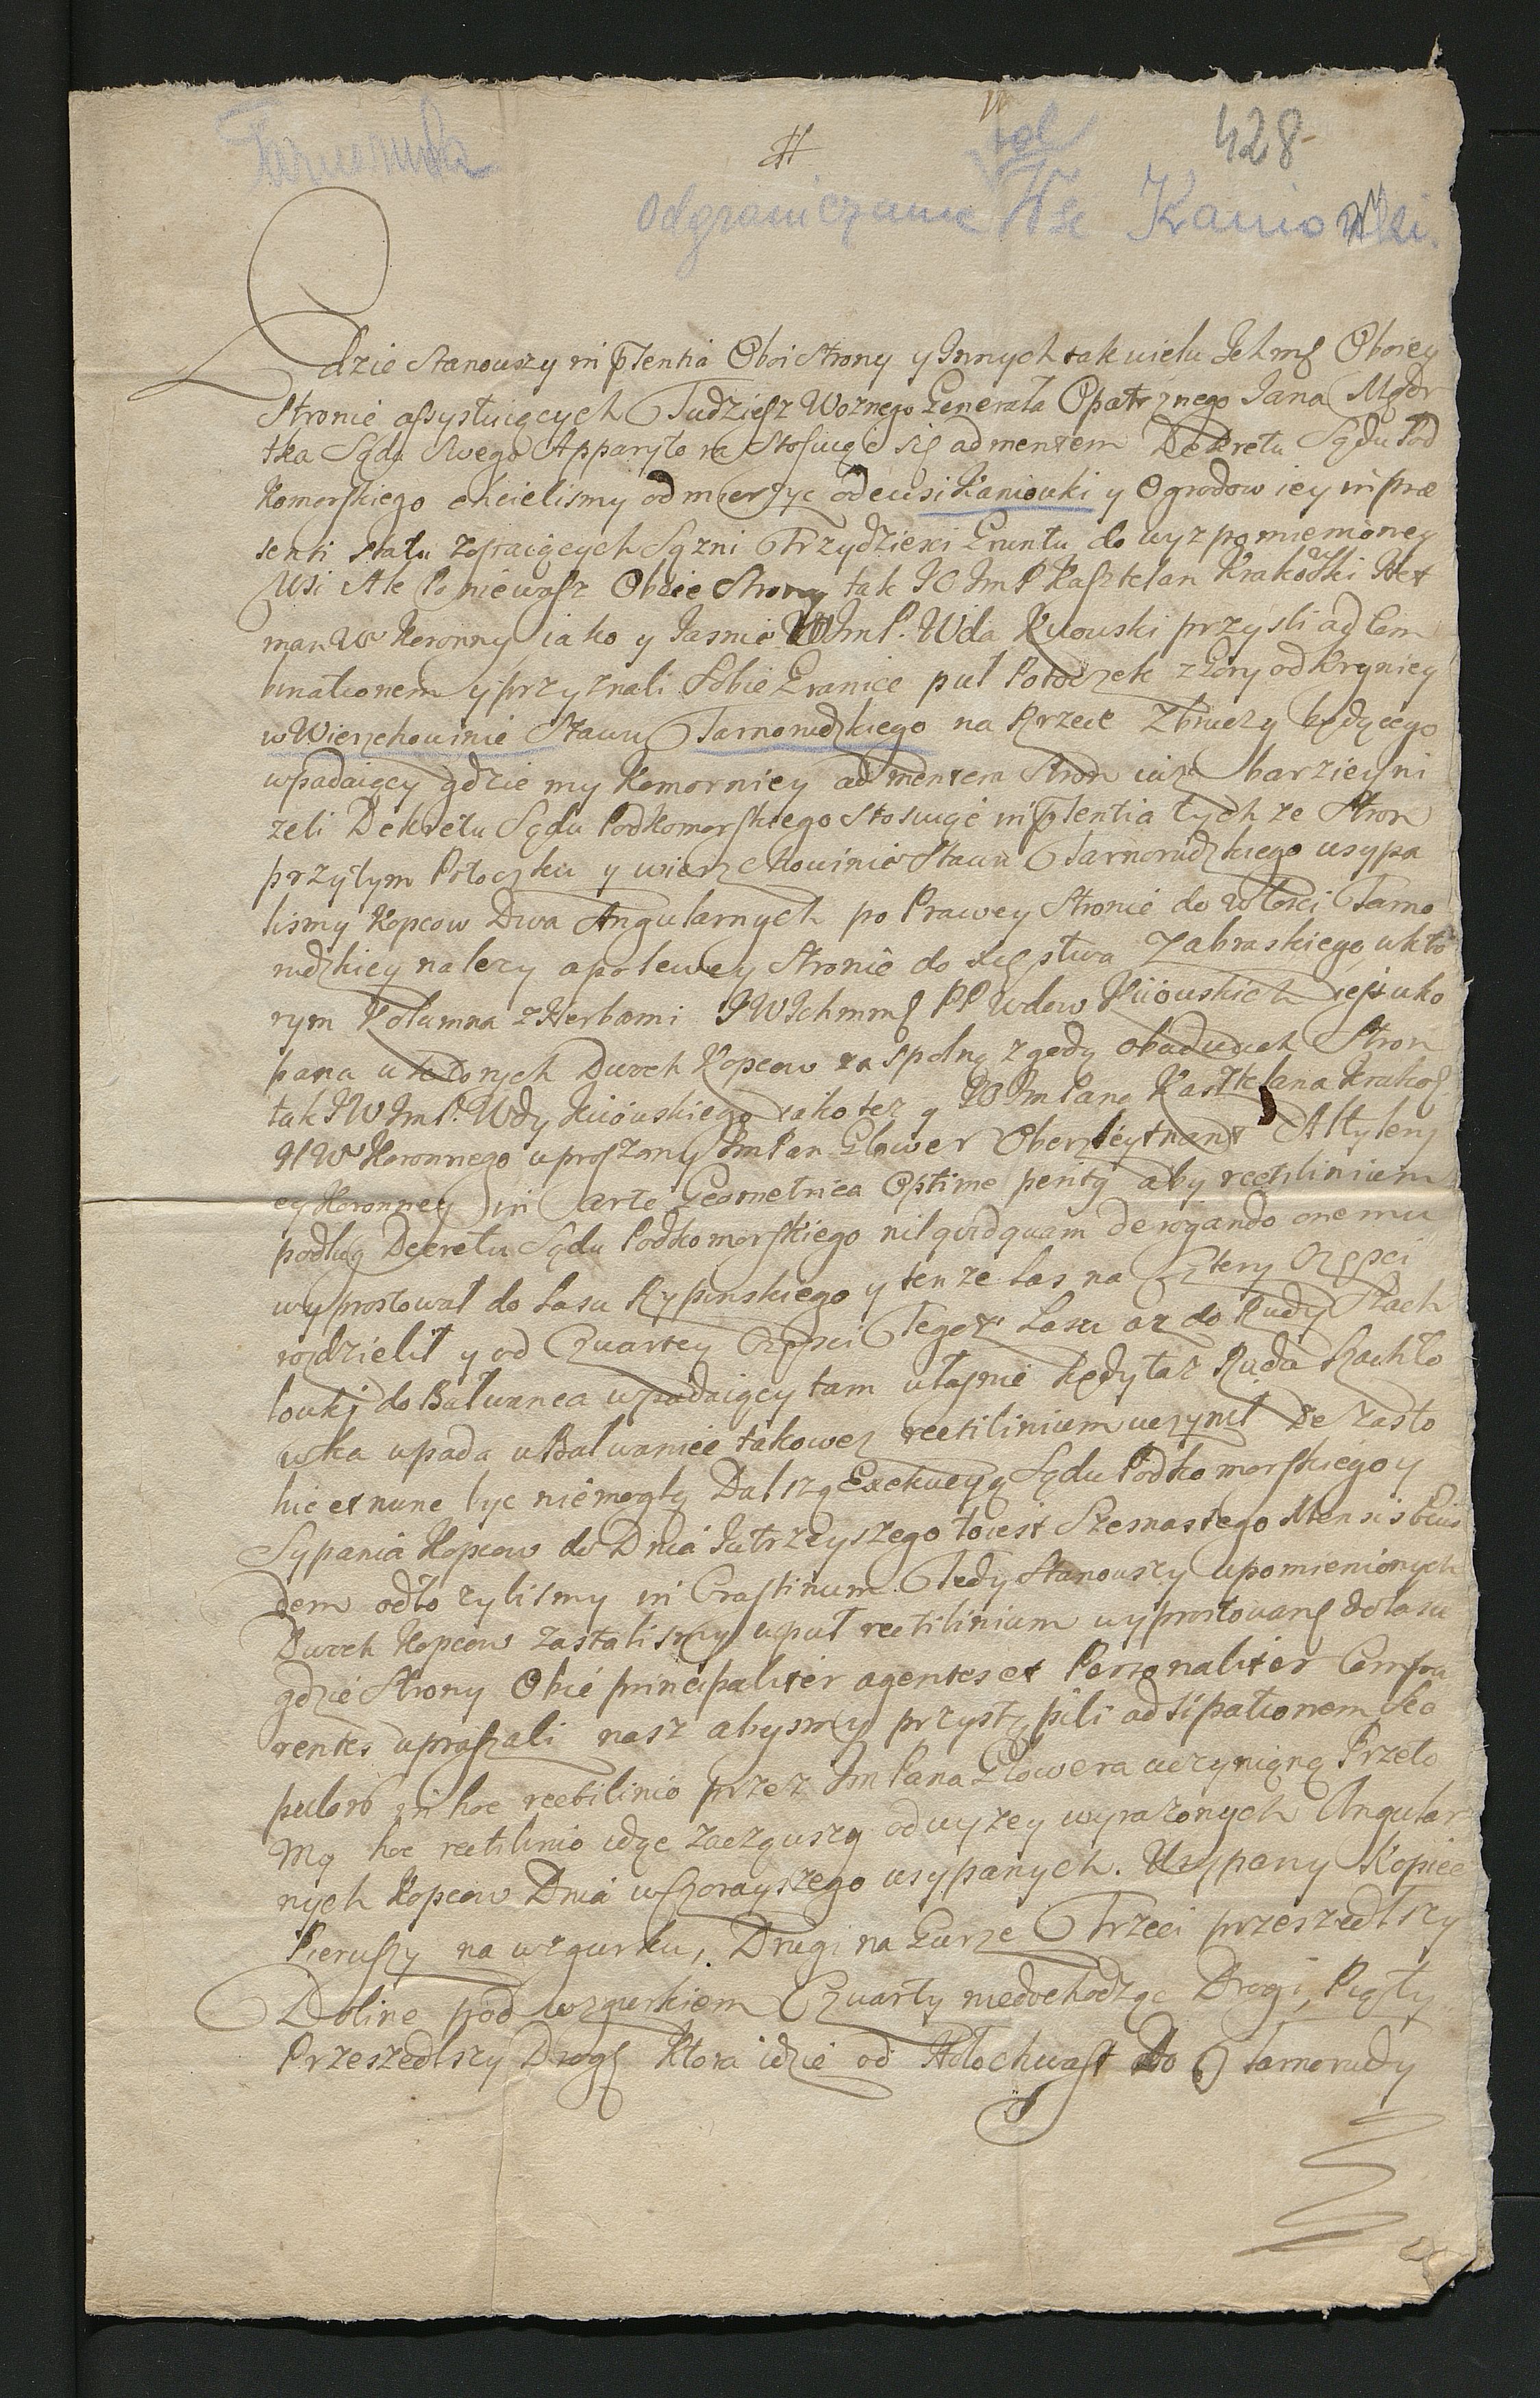 Tarnoruda
428
odgraniczenie Wsi Kaniowki.
Gdzie Stanowszy in Pſentia Oboi Strony y Innych tak wielu Ichmḉ Oboiey
Stronie aſsystuiących Tudzieſz Woznego Generała Opatrznego Iana
Sądu Swego Apparyto ra Stoſuiąc się ad mentem Dekretu Sądu Pod
komorſkiego chcielismy odmierzyc odewsi Kaniowki y Ogrodow iey in præ
senti statu Sązni Trzydzieści Gruntu do wyz pomienioney
Wsi Ale Poniewaſz Obbie Strony tak JO ImP Kasztelan Krakowſki Het
man W Koronny iako y Iasnie W ImP. Wda Kiiowski przyśli ad Com
binationem y przyznali Sobie Granice puł Potoczek z Gory od Krynicy
w Wierzchowinie Stawu Tarnorudzkiego na Rzece Zbruczy będącego
wpadaiący gdzie my Komornicy ad mentem Stron iuż barzieyſ ni
zeli Dekretu Sądu Podkomorſkiego Stosuiąc in Pſentia tych ze Stron
przytym Potoczku y wierzchowinie Stawu Tarnorudzkiego usypa
lismy Kopcow Dwa Angularnych po Prawey Stronie do włości Tarno
rudzkiey nalezy a po lewey Stronie do Xięſtwa Zabraskiego, w kto
rym Kolumna z Herbami JWIchmmḉ PP Wdow Kiiowskich iest wko
pana u ktorych Dwoch Kopcow za spolną zgodą obudwuch Stron
tak JW ImP. Wdy Kiiowskiego iako tez y JO Im Pana Kasztelana Krakoſ
HW Koronnego uproszony ImPan Glower Oberszleytnant Altylery
ey Koronney in arte Geometrica Optime peritg aby rectilinium
podług Decretu Sądu Podkomorſkiego nil quidquam derogando onemu
wyprostował do Lasu Rypinskiego y tenze Las na Cztery Części
rozdzielił y od Czwartey Części Tegoz Lasu az do Rudy Szach
lowki do Bałwanca wpadaiącey tam właſnie kędy taz Ruda Szachło
wka wpada w Bałwaniec takowez rectilinium uczynił Ze zasto
hic et nunc byc niemogło Dalszą Exekucyą Sądu Podkomorſkiego y
Sypania Kopcow do Dnia Iutrzeyszego toiest Szesnastego Mensis Eius
dem odłozylismy in Crastinum Tedy Stanowszy u pomienionych
Dwoch Kopcow zastalismy wpuł rectilinium wyprostowanę do Lasu
gdzie Strony Obie principaliter agentes et Personaliter Compa
rentes upraſzali nasz abysmy przystąpili ad sipationem Sco
pulorū in hoc rectilinio przez ImPana Glowera uczynioną Przeto
My hoc rectilinio idąc zacząwszy od wyzey wyrazonych Angular
nych Kopcow Dnia wczorayszego usypanych. Usypany Kopiec
Pierwſzy na wzgurku, Drugi na Gurze Trzeci przeszedłszy
Doline pod wzgurkiem Czwarty niedochodząc Drogi, Piąty
Przeszedłszy Drogę ktora idzie od Hołochwaſt do Tarnorudy